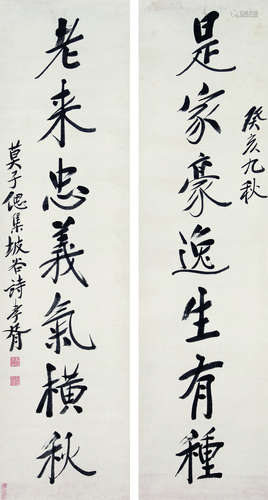 癸亥九秋
是家豪逸生有種
老来忠義氣横秋
莫子偲集坡谷詩孝胥